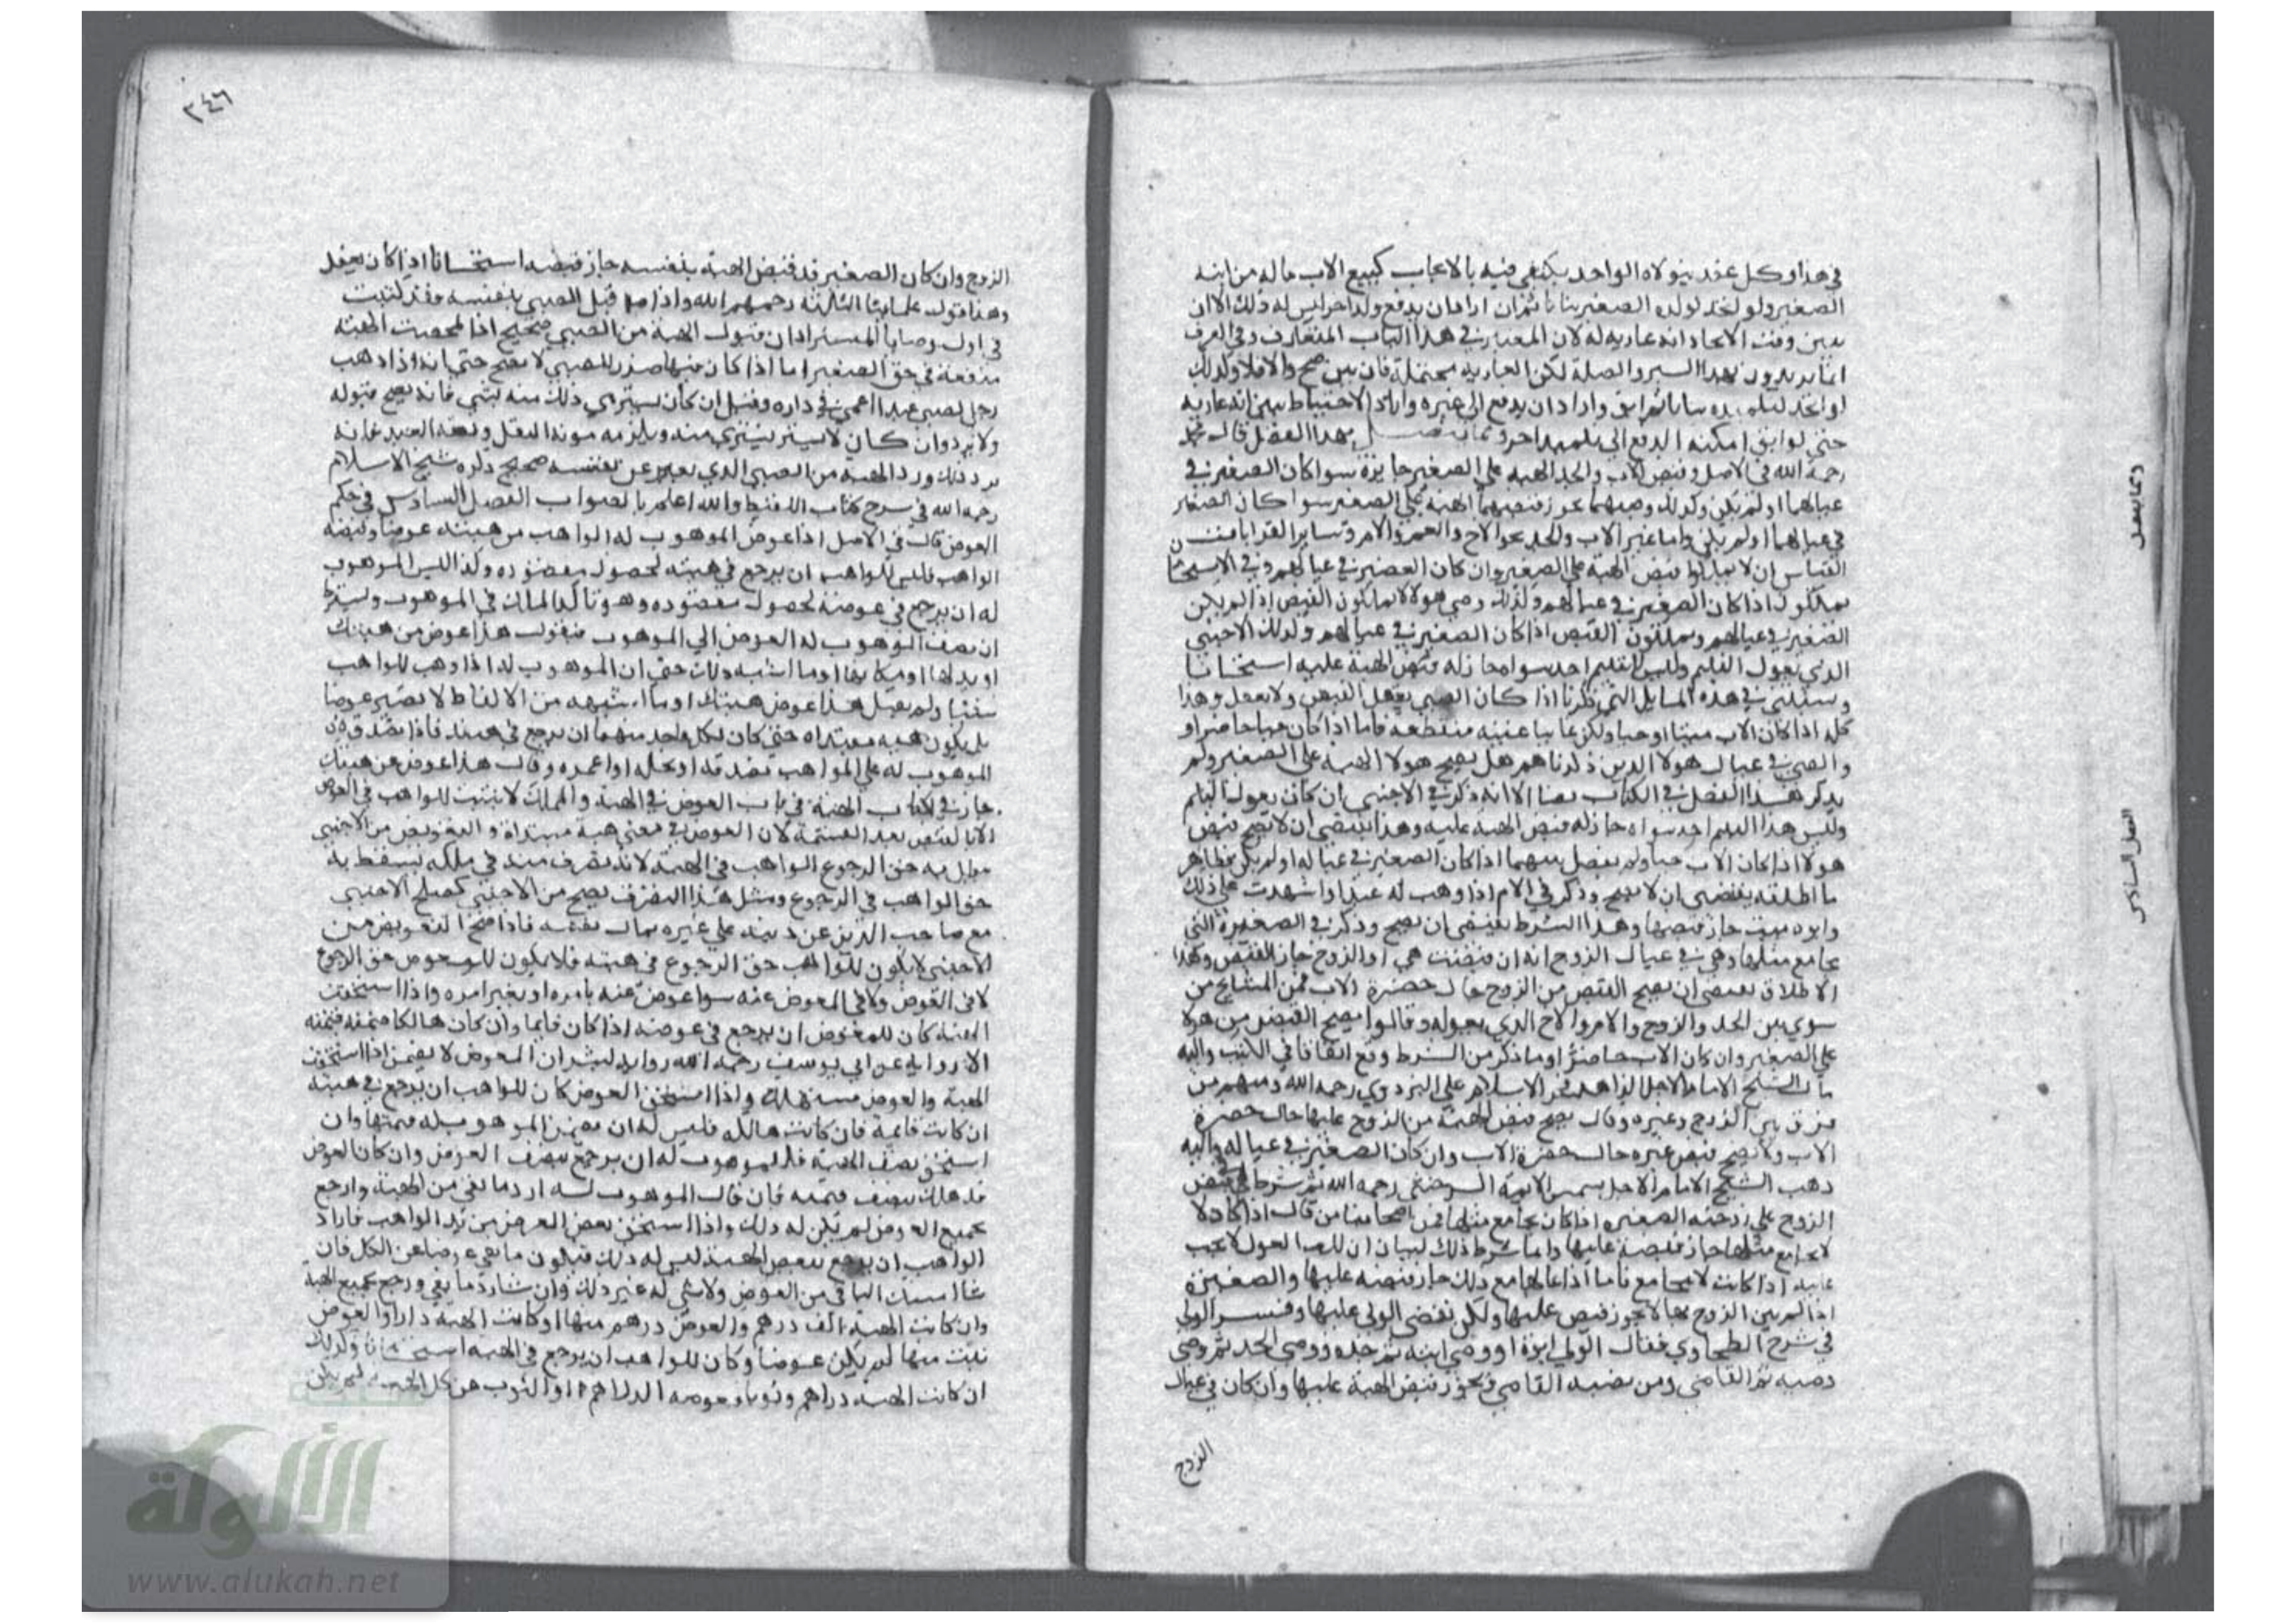 في هذا وكل عقد يتولاه الواحد يكتفى فيه بالايجاب كبيع الاب ماله من ابنه
الصغير ولو اتخد لولده الصغير ثيابا ثم اراد ان يدفع ولد اخر ليس له ذلك الا ان
يبين وقت الاتخاد انه عاريه له لان المعتبر في هذا الباب المتعارف وفي العرف
انما يريدون بهذا البر والصلة لكن العاريه محتملة فان بين صح والا فلا وكذلك
لو اتخد لتلميذه ثيابا ثم ابق واراد ان يدفع الى غيره واراد الاحتياط يبين انه عاريه
حتى لو ابق امكنه الدفع الى تلميذ اخر ومما يتصل بهذا الفصل قال محمد
رحمه الله في الاصل وقبض الاب والجد الهبه على الصغير جايزة سوا كان الصغير في
عيالهما او لم يكن وكذلك وصيهما يجوز قبضهما الهبة على الصغير سوا كان الصغير
في عيالهما او لم يكن واما غير الاب والجد نحو الاخ والعم والام وساير القرابات
القياس ان لا يملكوا قبض الهبة على الصغير وان كان الصغير في عيالهم وفي الاستحسان
يملكون اذا كان الصغير في عيالهم وكذلك وصي هولا لا يملكون القبض اذا لم يكن
الصغير في عيالهم ويملكون القبض اذا كان الصغير في عيالهم وكذلك الاجنبي
الذي يعول اليتيم وليس لليتيم احد سواه جاز له قبض الهبة عليه استحسانا
ويستوي في هذه المسايل التي ذكرنا اذا كان الصبي يعقل القبض ولا يعقل وهذا
كله اذا كان الاب ميتا او حيا ولكن غايبا غيبة منقطعة فاما اذا كان حيا حاضرا
والصبي في عيال هولا الذين ذكرناهم هل يصح هولا الهبة على الصغير ولم
يذكر هذا الفصل في الكتاب نصا الا انه ذكر في الاجنبي ان كان يعول اليتيم
وليس هذا اليتيم احد سواه جاز له قبض الهبة عليه وهذا يقتضي ان لا يصح قبض
هولا اذا كان الاب حيا ولم يفصل بينهما اذا كان الصغير في عياله او لم يكن فظاهر
ما اطلقه يقتضي ان لا يصح وذكر في الام اذا وهب له عبد اذا شهدت على ذلك
وابوه ميت جاز قبضها وهذا الشرط يقتضي ان يصح وذكر في الصغيرة التي
يجامع مثلها وهي في عيال الزوج انه ان قبضت هي او الزوج جاز القبض وهذا
الاطلاق يقتضي ان يصح القبض من الزوج حال حضرة الاب فمن المشايخ من
سوى بين الجد والزوج والام والاخ الذي يعوله وقالوا يصح القبض من هولا
على الصغير وان كان الاب حاضرا وما ذكر من الشرط وقع اتفاقا في الكتب واليه
مال الشيخ الامام الاجل الزاهد فخر الاسلام علي البزدوي رحمه الله ومنهم من
فرق بين الزوج وغيره وقال يصح قبض الهبة من الزوج عليها حال حضرة
الاب ولا يصح قبض غيره حال حضرة الاب وان كان الصغير في عياله واليه
ذهب الشيخ الامام الاجل شمس الايمة السرخسي رحمه الله ثم شرط في قبض
الزوج على زوجته الصغيره اذا كان يجامع مثلها فمن اصحابنا من قال اذا كان لا
يجامع مثلها جاز قبضه عليها وانما شرط ذلك لبيان ان العول لا يجب
عليه اذا كانت لا يجامع فاما اذا عالها مع ذلك جاز قبضه عليها والصغيرة
اذا لم يبن الزوج بها لا يجوز قبض عليها ولكن يقضى الولي عليها وفسر الولي
في شرح الطحاوي فقال الولي ابوه او وصي ابيه ثم جده ووصي الجد ثم وصي
وصيه ثم القاضي ومن نصبه القاضي ويجوز قبض الهبة عليها وان كان في عيال
الزوج
ومما يتصل
الفصل السادس
٣٤٦
الزوج وان كان الصغير قد قبض الهبة بنفسه جاز قبضه استحسانا اذا كان يعقل
وهذا قول علمائنا الثلاثة رحمهم الله واذا قبل الصبي بنفسه فقد كتبت
في اول وصايا المستزاد ان قبول الهبة من الصبي صحيح اذا تمحضت الهبة
منفعة في حق الصغير اما اذا كان فيها ضرر للصبي لا يصح حتى انه اذا وهب
رجل لصبي عبدا اعمى في داره وقيل ان كان يشتري ذلك منه بشي فانه يصح قبوله
ولا يرد وان كان لا يشتري منه ويلزمه مونة النقل ونفقة العبد فانه
يرد ذلك ورد الهبة من الصبي الذي يعبر عن نفسه صحيح ذكره شيخ الاسلام
رحمه الله في شرح كتاب اللقيط والله اعلم بالصواب الفصل السادس في حكم
العوض قال في الاصل اذا عوض الموهوب له الواهب من هبته عوضا وقبضه
الواهب فليس للواهب ان يرجع في هبته لحصول مقصوده وكذا ليس الموهوب
له ان يرجع في عوضه لحصول مقصوده وهو تاكد الملك في الموهوب ويشترط
ان يضيف الموهوب له العوض الي الموهوب فيقول هذا عوض من هبتك
او بدلها او مكانها او ما اشبه ذلك حتى ان الموهوب له اذا وهب للواهب
شيئا ولم يقل هذا عوض هبتك او ما اشبهه من الالفاظ لا يصير عوضا
بل يكون هبه مبتداه حتى كان لكل واحد منهما ان يرجع في هبته فاذا تصدق
الموهوب له على الواهب بصدقة او نحله او اعمره وقال هذا عوض من هبتك
جاز في كتاب الهبة في باب العوض في الهبة والملك لا يثبت للواهب في العوض
الا بالقبض بعد القسمة لان العوض في معنى هبة مبتداة والتعويض من الاجنبي
حق الرجوع الواهب في الهبة لانه تصرف منه في ملكه يسقط به
حق الواهب في الرجوع ومثل هذا التصرف يصح من الاجنبي كصلح الاجنبي
مع صاحب الدين عن دينه على غيره بمال نفسه فاذا صح التعويض من
الاجنبي لا يكون للواهب حق الرجوع في هبته فلا يكون للمعوض حق الرجوع
لا في العوض ولا في المعوض عنه سوا عوض عنه بامره او بغير امره واذا استحقت
الهبة كان للمعوض ان يرجع في عوضه اذا كان قايما وان كان هالكا ضمنه قيمته
الا رواية عن ابي يوسف رحمه الله رواية لبشر ان المعوض لا يضمن اذا استحقت
الهبة والعوض مستهلك واذا استحق العوض كان للواهب ان يرجع في هبته
ان كانت قايمة فان كانت هالكه فليس له ان يضمن الموهوب له قيمتها وان
استحق نصف الهبة فللموهوب له ان يرجع بنصف العوض وان كان العوض
قد هلك بنصف قيمته فان قال الموهوب له ارد ما بقى من الهبة وارجع
بجميع العوض لم يكن له ذلك واذا استحق بعض العوض من يد الواهب فاراد
الواهب ان يرجع ببعض الهبة ليس له ذلك فيكون ما بقي عوضا عن الكل فان
شا امسك الباقي من العوض ولا شي له غير ذلك وان شا رد ما بقي ورجع بجميع الهبة
وان كانت الهبة الف درهم والعوض درهم منها او كانت الهبة دارا والعوض
بيت منها لم يكن عوضا وكان للواهب ان يرجع في الهبه استحسانا وكذلك
ان كانت الهبة دراهم وثوبا وعوضه الدراهم او الثوب عن كل الهبة لم يكن
الألوكة
www.alukah.net